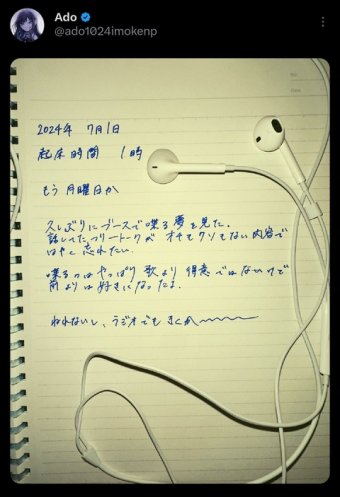 Ado
@ado1024imokenp
2024年 7月1日
起床時間 1時
もう月曜日か
久しぶりにブースで喋る夢を見た.
話してたフリートークが オチもクソもない内容で
はやく忘れたい.
喋るのはやっぱり 歌より 得意ではないけど
前よりは好きになったよ.
ねれないし、ラジオでもきくか〜〜〜